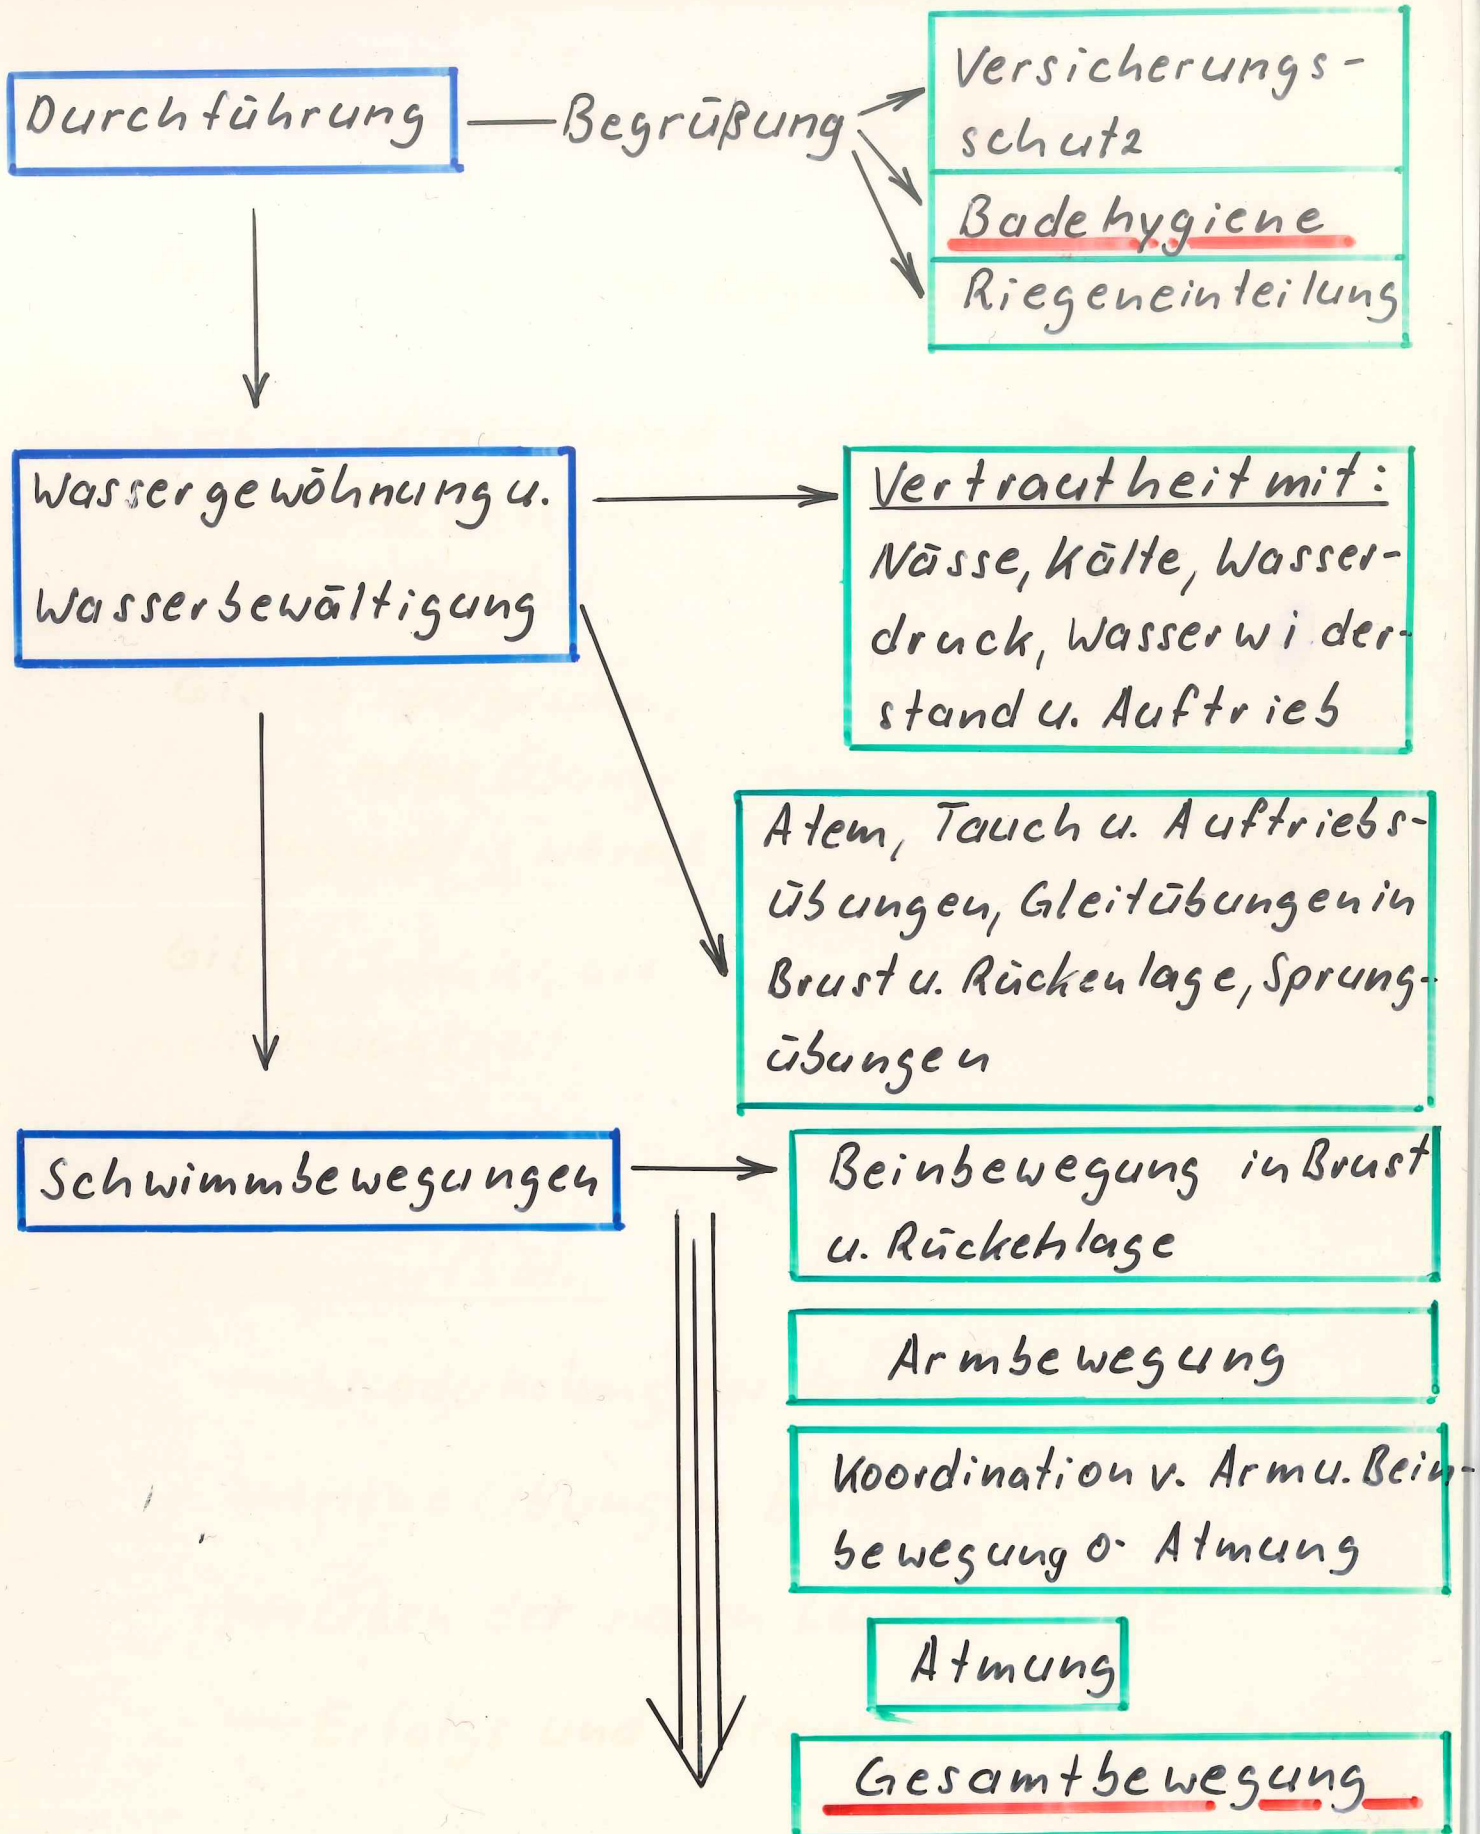 Durchführung
Begrüßung
Versicherungs-
schutz
Badehygiene
Riegeneinteilung
Wassergewöhnung u.
Wasserbewältigung
Vertrautheit mit:
Nässe, Kälte, Wasser-
druck, Wasserwider-
stand u. Auftrieb
Atem, Tauch u. Auftriebs-
übungen, Gleitübungen in
Brust u. Rückenlage, Sprung-
übungen
Schwimmbewegungen
Beinbewegung in Brust
u. Rückenlage
Armbewegung
Koordination v. Arm u. Bein-
bewegung o. Atmung
Atmung
Gesamtbewegung